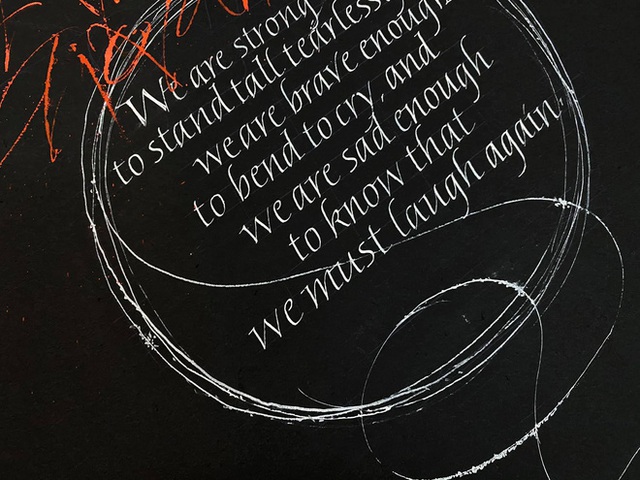 We are strong
to stand tall tearlessly
we are brave enough
to bend to cry, and
we are sad enough
to know that
we must laugh again.